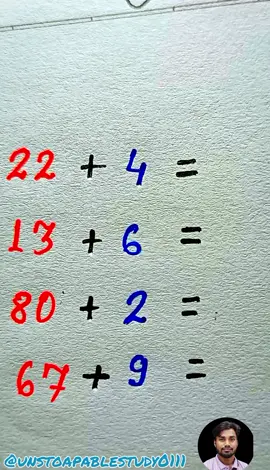 22 + 4 =
13 + 6 =
80 + 2 =
67 + 9 =
@UNSTOAPABLESTUDY0111